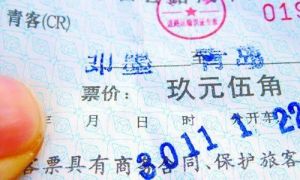 019
青客(CR)
即墨 青岛
票价: 玖元伍角
月 日 时 分开车
3011 1 22
客票具有商务合同、保护旅客